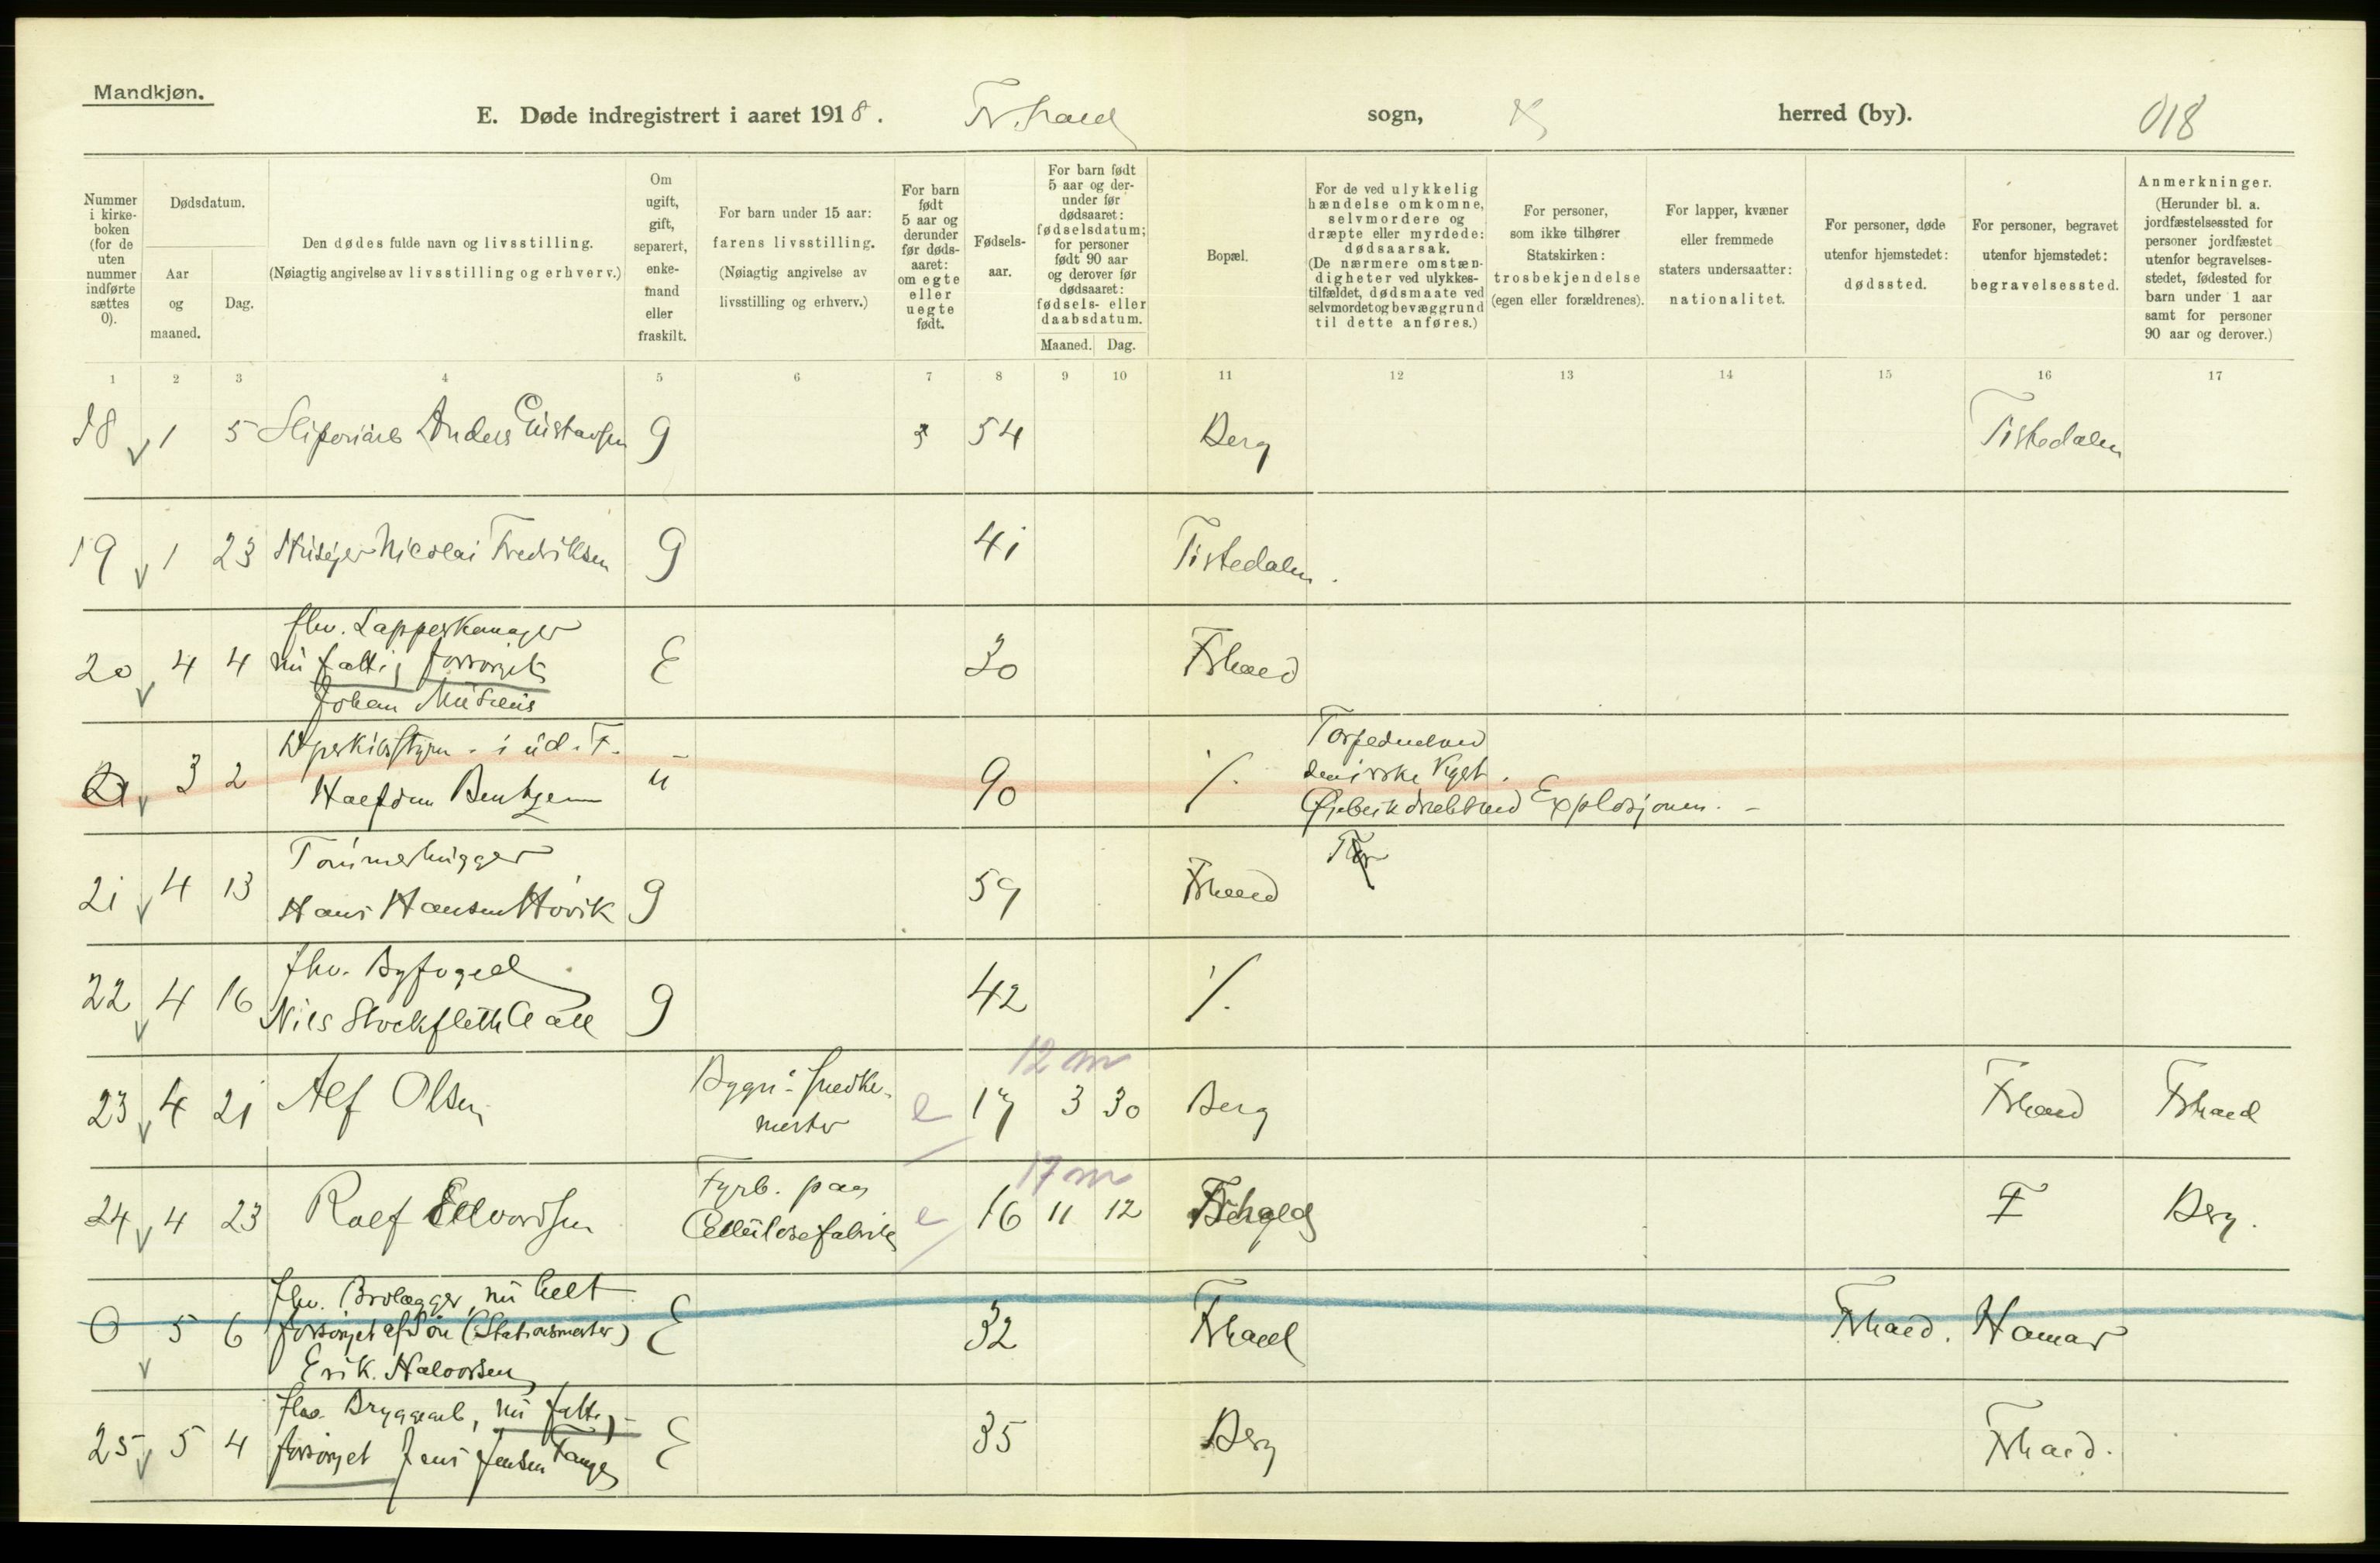 Mandkjøn.
E. Døde indregistrert i aaret 1918. Fr.hald sogn, herred (by). 018
Nummer i kirke-boken (for de uten nummer indførte sættes 0).
Dødsdatum.
Aar og maaned.
Dag.
Den dødes fulde navn og livsstilling.
(Nøiagtig angivelse av livsstilling og erhverv.)
Om ugift, gift, separert, enke-mand eller fraskilt.
For barn under 15 aar: farens livsstilling.
(Nøiagtig angivelse av livsstilling og erhverv.)
For barn født 5 aar og derunder før døds-aaret: om egte eller uegte født.
Fødsels-aar.
For barn født 5 aar og der-under før dødsaaret: fødselsdatum; for personer født 90 aar og derover før dødsaaret: fødsels- eller daabsdatum.
Maaned. Dag.
Bopæl.
For de ved ulykkelig hændelse omkomne, selvmordere og dræpte eller myrdede: dødsaarsak.
(De nærmere omstæn-digheter ved ulykkes-tilfældet, dødsmaate ved selvmordet og bevæggrund til dette anføres.)
For personer, som ikke tilhører Statskirken: trosbekjendelse (egen eller forældrenes).
For lapper, kvæner eller fremmede staters undersaatter: nationalitet.
For personer, døde utenfor hjemstedet: dødssted.
For personer, begravet utenfor hjemstedet: begravelsessted.
Anmerkninger.
(Herunder bl. a. jordfæstelsessted for personer jordfæstet utenfor begravelses-stedet, fødested for barn under 1 aar samt for personer 90 aar og derover.)
1 2 3 4 5 6 7 8 9 10 11 12 13 14 15 16 17
18 1 5 Sliperiarb Anders Gustavsen g 54 Berg Tistedalen
19 1 23 Husejer Nicolai Fredriksen g 41 Tistedalen.
fhv.
20 4 4 nu fattig forsørget E 30 Frhald
Johan
i ud. F. Torpedned
21 3 2 Halfdan Bentzen u 90 ٪ den norske
Explosjonen. -
Tømmerhugger
21 4 13 Hans Hansen Høvik g 59 Frhald
fhv. Byfoged
22 4 16 Nils Stockfleth g 42 ٪
12 m
23 4 21 Alf Olsen e 17 3 30 Berg Frhald Frhald
mester
17 m
Fyrb. paa
24 4 23 Rolf Edvardsen Cellulosefabrik e 16 11 12 F Berg.
fhv. Brolægger, nu helt
0 5 6 forsørget af Søn (Stationsmester) E 32 Frhald Frhald. Hamar
Erik Halvorsen
fhv. Bryggearb, nu fattig-
25 5 4 forsørget Jens Jensen Tange E 35 Berg Frhald.